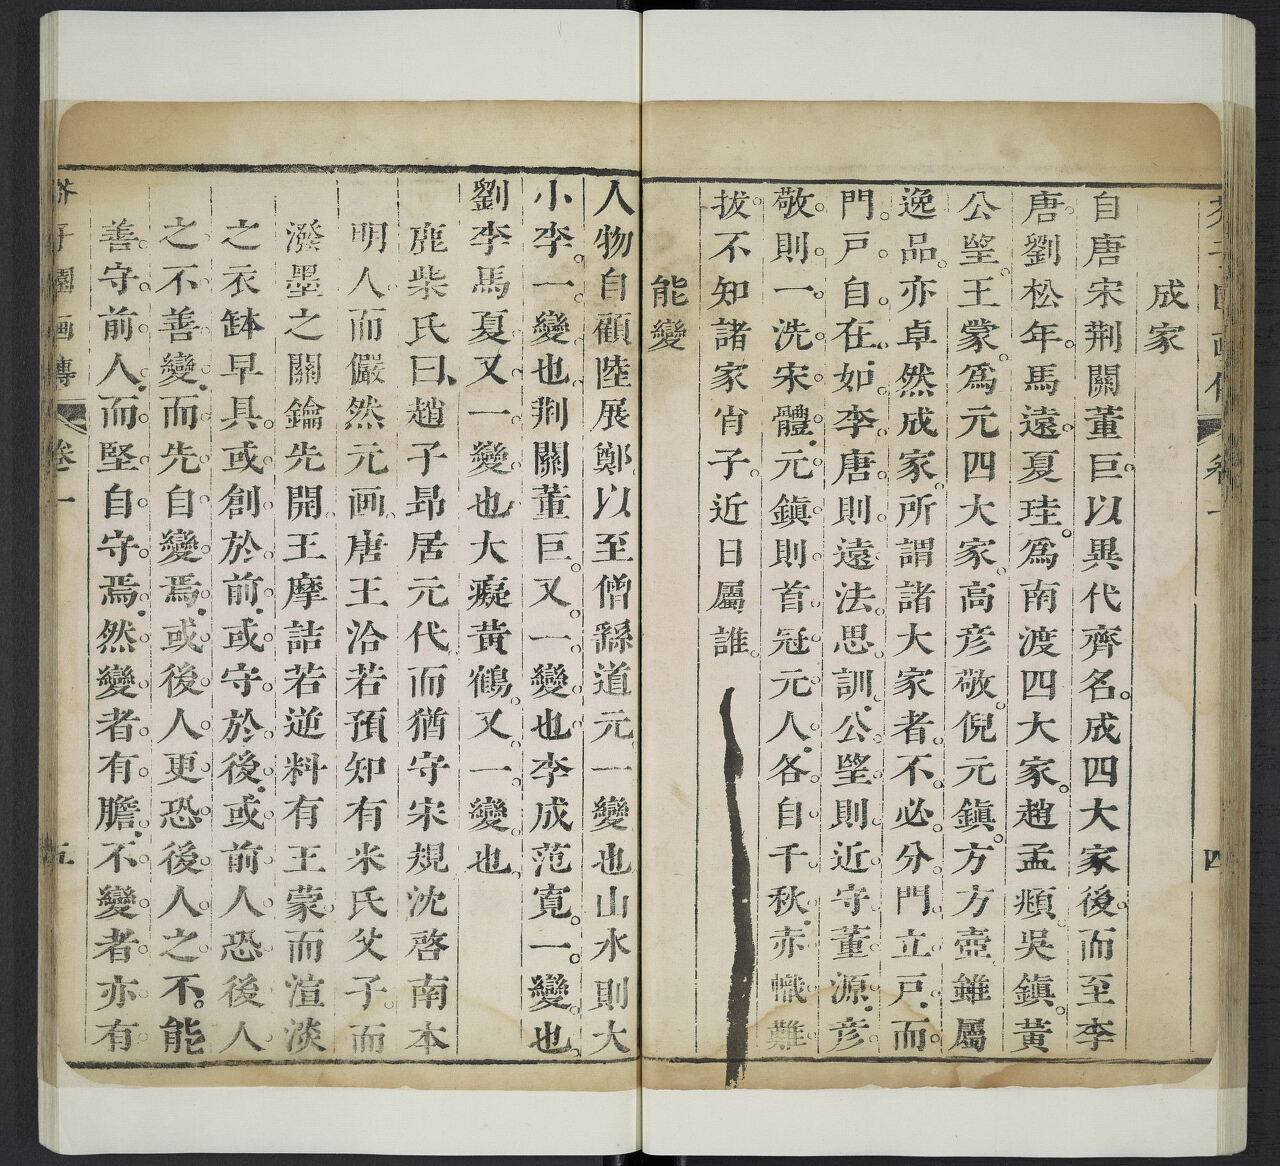 成家
自唐宋荆關董巨。以異代齊名。成四大家後。而至李
唐。劉松年。馬遠。夏珪。爲南渡四大家。趙孟頫。吳鎭。黃
公望。王蒙。爲元四大家。高彦敬。倪元鎭。方方壺。雖屬
逸品。亦卓然成家。所謂諸大家者。不必分門立戸。而
門戸自在。如李唐。則遠法思訓。公望則近守董源。彦
敬。則一洗宋體。元鎭則首冠元人。各自千秋。赤幟難
拔。不知諸家肖子。近日屬誰。
能變
人物自顧陸展鄭。以至僧繇道元。一變也。山水則大
小李。一變也。荆關董巨。又一變也。李成范寬。一變也。
劉李馬夏。又一變也。大癡黃鶴。又一變也。
鹿柴氏曰。趙子昻居元代。而猶守宋規。沈啓南本
明人。而儼然元画。唐王洽若預知有米氏父子。而
潑墨之關鑰先開。王摩詰若逆料有王蒙。而渲淡
之衣鉢早具。或創於前。或守於後。或前人恐後人
之不善變。而先自變焉。或後人更恐後人之不能
善守前人。而堅自守焉。然變者有膽。不變者亦有
子園画傳 卷一 五
四